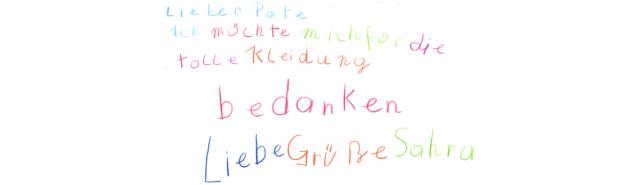 Lieber Pate
Ich möchte mich für die
tolle Kleidung
bedanken
Liebe Grüße Sahra